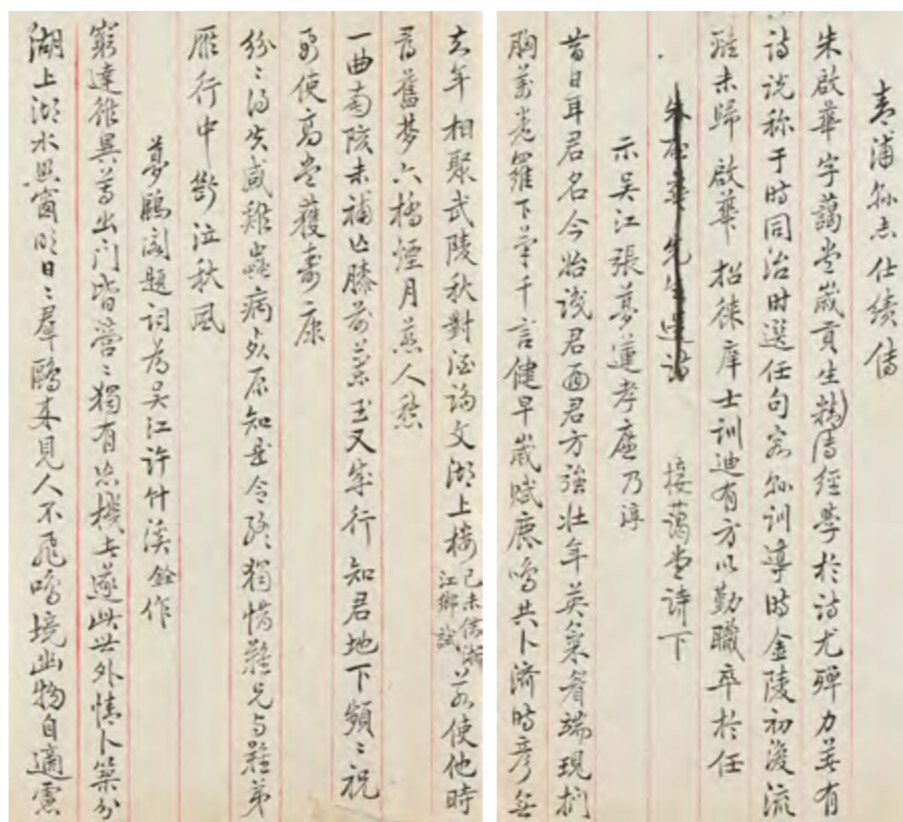 青浦縣志仕績傳
朱啟華字藹堂歲貢生精偹經學於詩尤殫力並有
詩說称于時同治时選任句容縣訓導時金陵初復流
離未歸啟華招徠庠士訓迪有方以勤職卒於任
朱啟華先生遺詩 接藹堂詩下
示吴江張夢蓮孝廉乃淳
昔日耳君名今始識君面君方強壯年英氣眉端現捫
胸萬卷羅下筆千言健早歲賦鹿鳴共卜濟時彥無
去年相聚武陵秋對酒論文湖上樓己未偕浙江鄉試 若使他時
尋舊夢六橋煙月惹人愁
一曲南陔未補亡膝前蘭玉又牽行知君地下頻〻祝
我使高堂獲壽康
紛〻得失感雞蟲病矣原知是令終獨惜難兄与難弟
雁行中斷泣秋風
夢鷗閣題詞为吴江許竹溪銓作
窮達雖異等出門皆營〻獨有忘機士遂此世外情卜築分
湖上湖水照窗明日〻羣鷗来見人不飛鳴境幽物自適